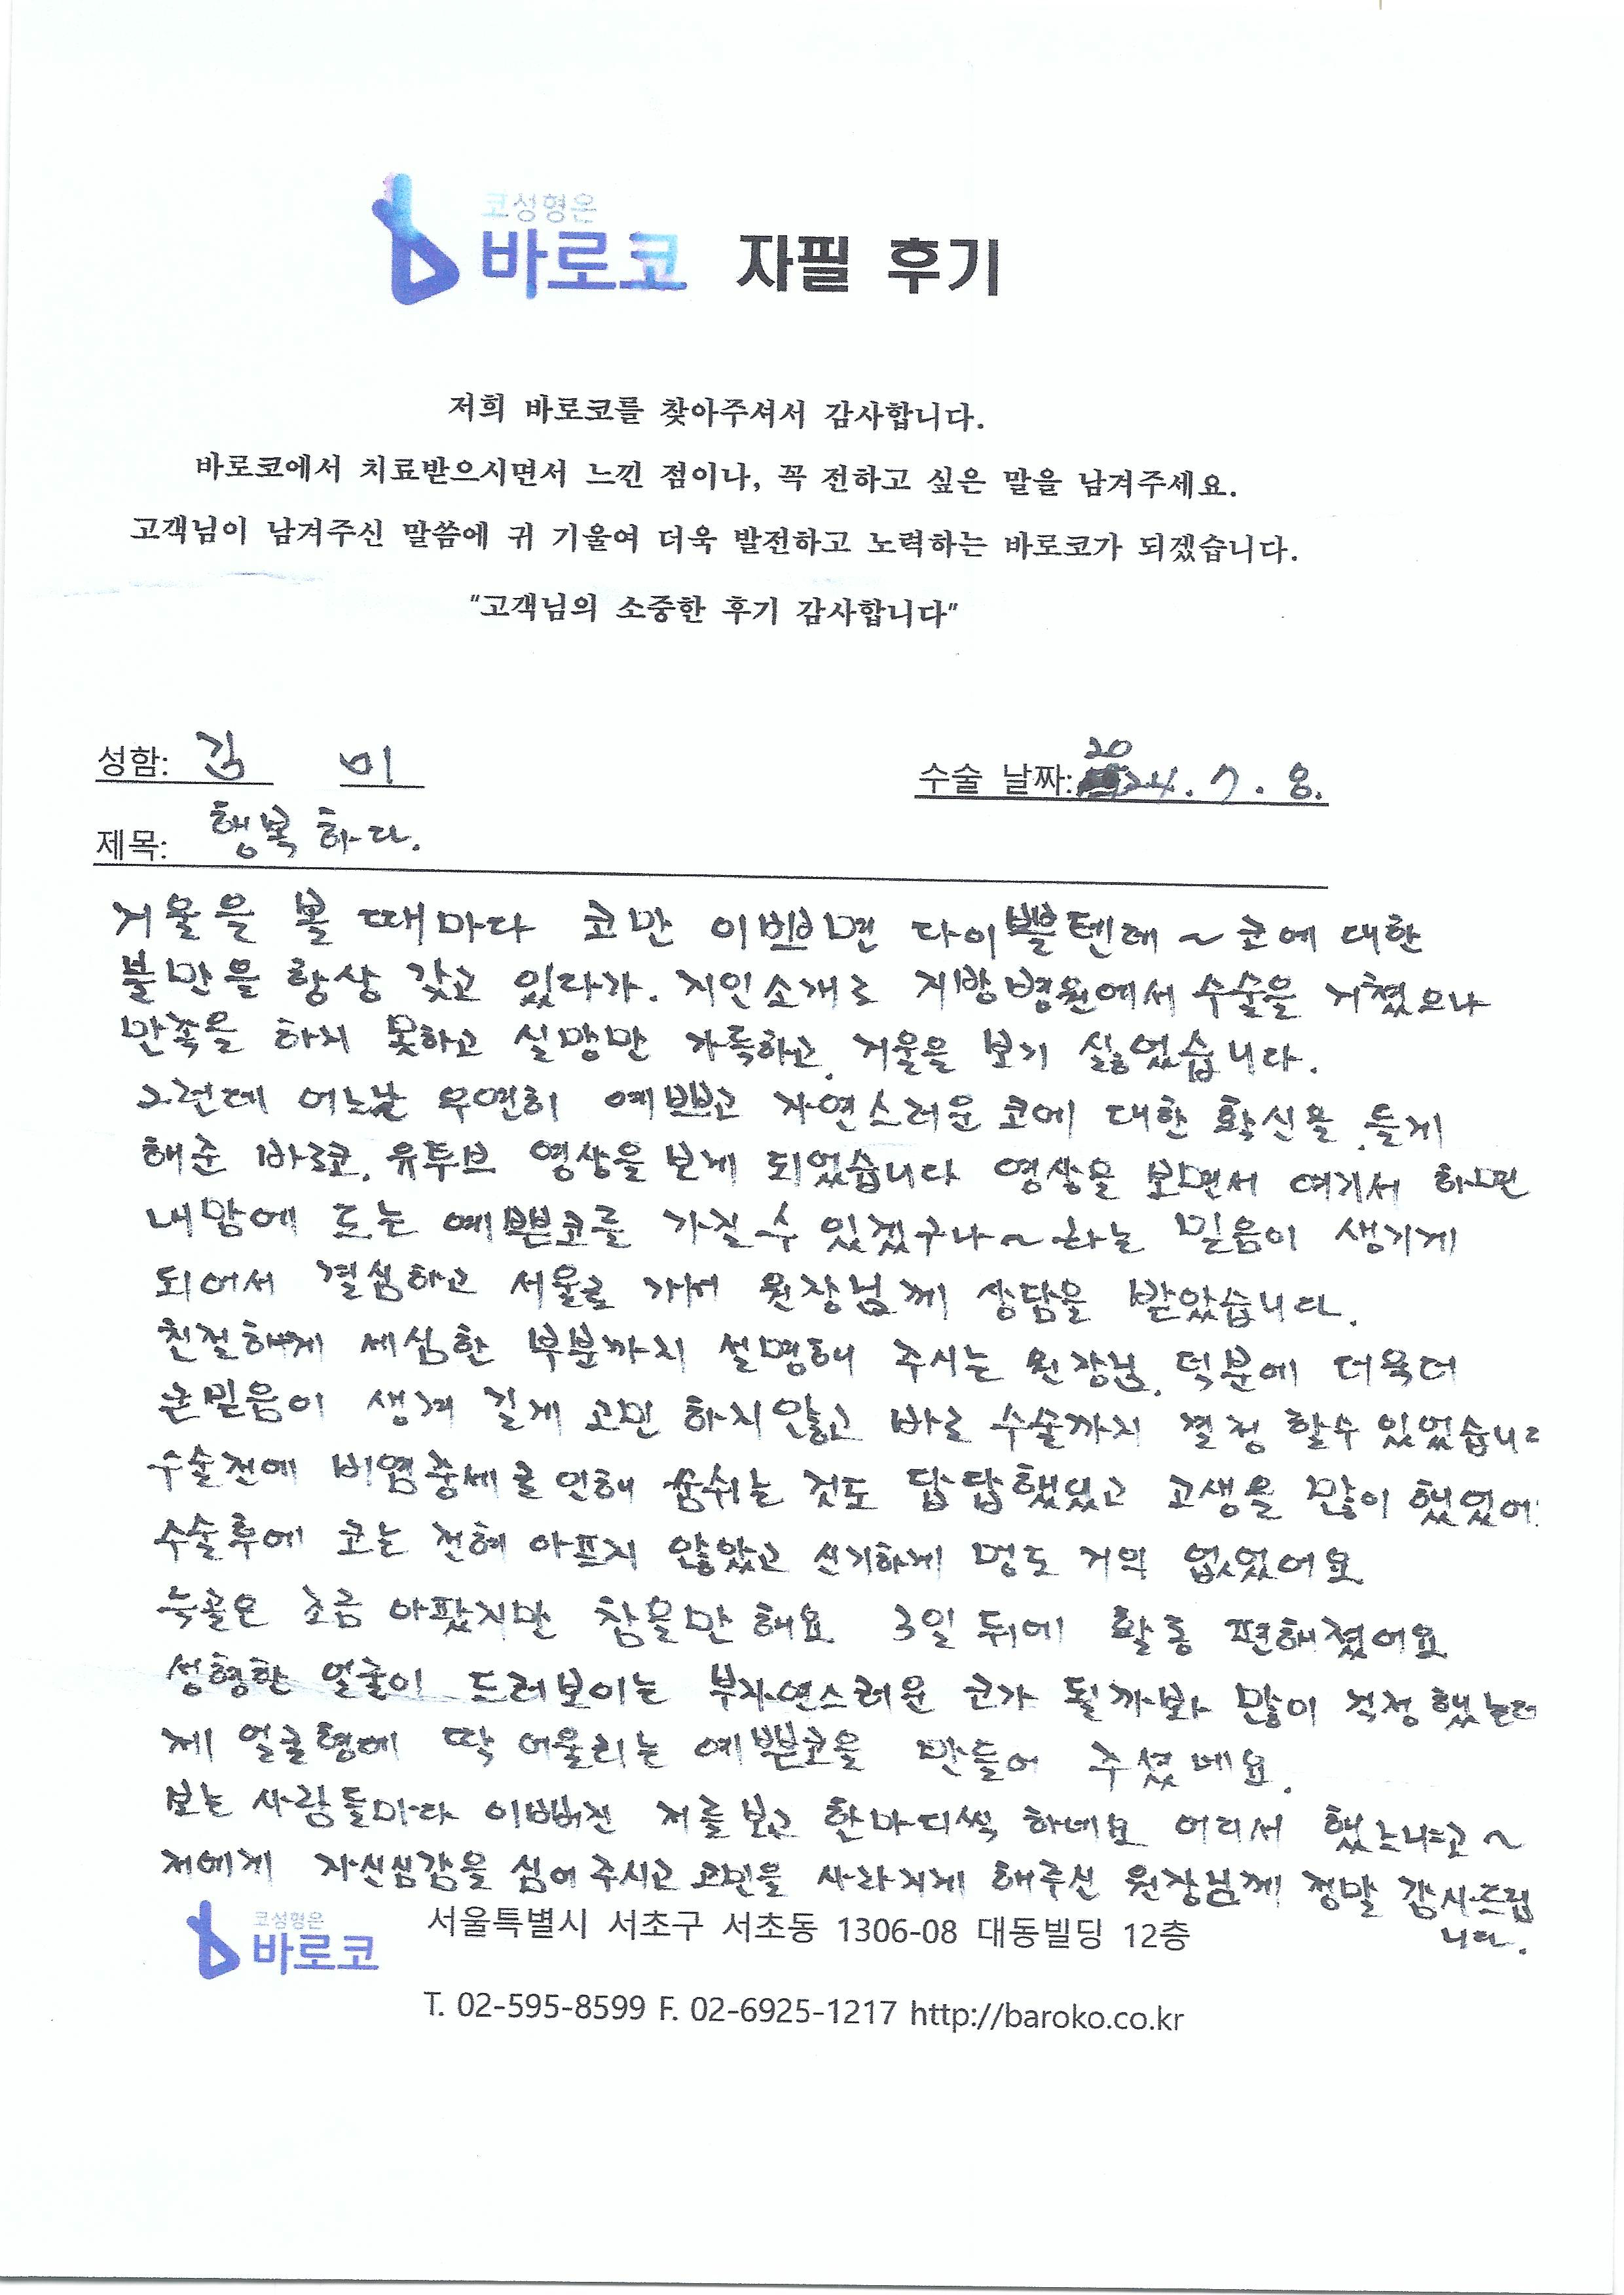 코성형은
바로코 자필 후기
저희 바로코를 찾아주셔서 감사합니다.
바로코에서 치료받으시면서 느낀 점이나, 꼭 전하고 싶은 말을 남겨주세요.
고객님이 남겨주신 말씀에 귀 기울여 더욱 발전하고 노력하는 바로코가 되겠습니다.
"고객님의 소중한 후기 감사합니다"
성함: 김 미
수술 날짜: 2024. 7. 8.
제목: 행복하다.
거울을 볼 때마다 코만 이쁘면 다이쁠텐데 ~ 코에 대한
불만을 항상 갖고 있다가. 지인소개로 지방병원에서 수술을 거쳤으나
만족을 하지 못하고 실망만 가득하고, 거울을 보기 싫었습니다.
그런데 어느날 우연히 예쁘고 자연스러운 코에 대한 확신을 들게
해준 바로코, 유투브 영상을 보게 되었습니다 영상을 보면서 여기서 하면
내맘에 드는 예쁜코를 가질수 있겠구나~ 하는 믿음이 생기게
되어서 결심하고 서울로 가서 원장님께 상담을 받았습니다.
친절하게 세심한 부분까지 설명해 주시는 원장님, 덕분에 더욱더
큰믿음이 생겨 길게 고민 하지않고 바로 수술까지 결정 할수 있었습니다
수술전에 비염증세로 인해 숨쉬는 것도 답답했었고 고생을 많이 했었어
수술후에 코는 전혀 아프지 않았고 신기하게 멍도 거의 없었어요
늑골은 조금 아팠지만 참을만 해요 3일 뒤에 활동 편해졌어요
성형한 얼굴이 드러보이는 부자연스러운 코가 될까봐 많이 걱정했는데
제 얼굴형에 딱 어울리는 예쁜코을 만들어 주셨네요.
보는 사람들마다 이뻐진 저를 보고 한마디씩 하네요 어디서 했느냐고~
저에게 자신심감을 심어 주시고 고민을 사라지게 해주신 원장님께 정말 감사드립
니다.
코성형은
바로코
서울특별시 서초구 서초동 1306-08 대동빌딩 12층
T. 02-595-8599 F. 02-6925-1217 http://baroko.co.kr